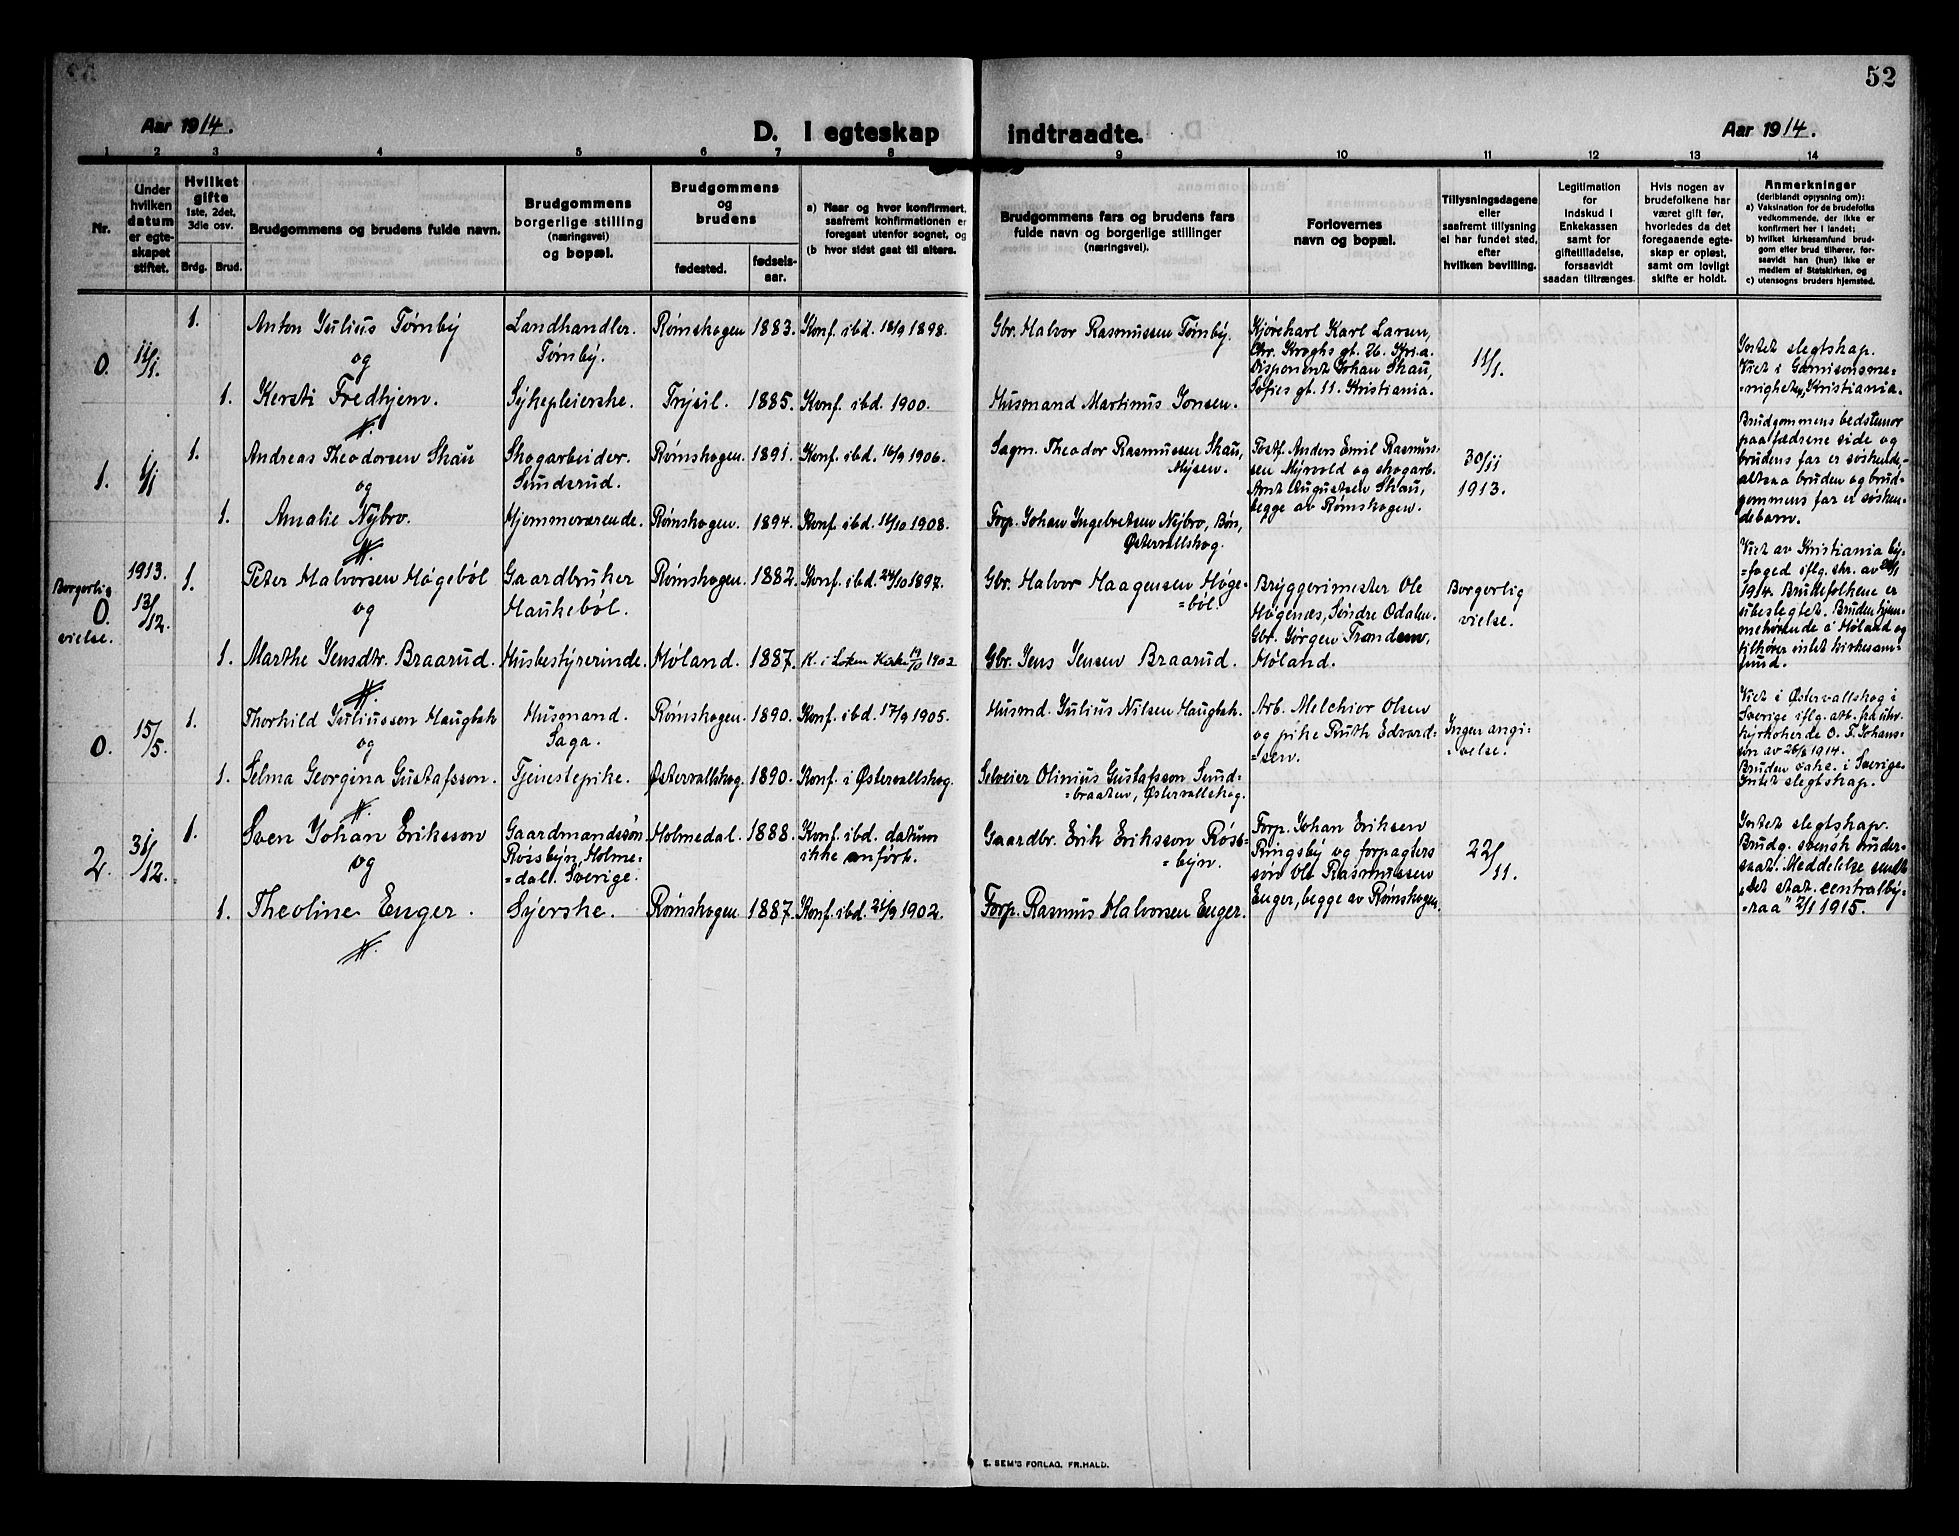 52
Aar 1914.
D. I egteskap indtraadte.
Aar 1914.
1 2 3 4 5 6 7 8 9 10 11 12 13 14
Nr.
Under
hvilken
datum
er egte-
skapet
stiftet.
Hvilket
gifte
1ste, 2det,
3die osv.
Brdg. Brud.
Brudgommens og brudens fulde navn.
Brudgommens
borgerlige stilling
(næringsvei)
og bopæl.
Brudgommens
og
brudens
fødested.
fødsels-
aar.
a) Naar og hvor konfirmert,
saafremt konfirmationen er
foregaat utenfor sognet, og
(b hvor sidst gaat til alters.
Brudgommens fars og brudens fars
fulde navn og borgerlige stillinger
(næringsvei).
Forlovernes
navn og bopæl.
Tillysningsdagene
eller
saafremt tillysning
ei har fundet sted,
efter
hvilken bevilling.
Legitimation
for
Indskud i
Enkekassen
samt for
giftetilladelse,
forsaavidt
saadan tiltrænges.
Hvis nogen av
brudefolkene har
været gift før,
hvorledes da det
foregaaende egte-
skap er opløst,
samt om lovligt
skifte er holdt.
Anmerkninger
(deriblandt oplysning om):
a) Vaksination for de brudefolks
vedkommende, der ikke er
konfirmert her i landet;
b) hvilket kirkesamfund brud-
gom eller brud tilhører, for-
saavidt han (hun) ikke er
medlem af Statskirken, og
c) utensogns bruders hjemsted.
0. 11/1.
1. Anton Julius Tørnby
og
1. Kersti Fredhjem.
Landhandler.
Tørnby.
Sykepleierske.
Rømskogen 1883. Konf. ibd. 18/9 1898.
Trysil. 1885. Konf. ibd. 1900.
Gbr. Halvor Rasmussen Tørnby.
Husmand Martinus Jonsen.
Kjørekarl Karl Larsen,
Chr. Kroghs gt. 26. Kria.
Disponent Johan Skau,
Sofies gt. 11. Kristiania.
11/1.
Intet slegtskap.
Viet i Garnisonsme-
nigheten, Kristiania.
1. 1/1
1. Andreas Theodorsen Skau
og
1. Amalie Nybro.
Skogarbeider.
Sundsrud.
Hjemmeværende.
Rømskogen. 1891. Konf. ibd. 16/9 1906.
Rømskogen. 1894. Konf. ibd. 11/10 1908.
Sagm. Theodor Rasmussen Skau,
Mysen.
Forp. Johan Ingebretsen Nybro, Bøn,
Østervallskog.
Postf. Anders Emil Rasmus-
sen Nyvold og skogarb.
Arnt Augustsen Skau,
begge av Rømskogen.
30/11
1913.
Brudgommens bedstemor
paa fædrene side og
brudens far er søskende,-
altsaa bruden og brud-
gommens far er søsken-
debarn.
Borgerlig
0.
vielse.
1913.
13/12.
1. Peter Halvorsen Høgebøl
og
1. Marthe Jensdtr. Braarud.
Gaardbruker
Haukebøl.
Husbestyrerinde.
Rømskogen 1882. Konf. ibd. 24/10 1897.
Høland. 1887. K. i Løken Kirke 1902
Gbr. Halvor Haagensen Høge-
=bøl.
Gbr. Jens Jensen Braarud.
Bryggerimester Ole
Høgenæs, Søndre Odalen.
Gbr. Jørgen Trandem,
Høland.
Borgerlig
vielse.
Viet av Kristiania by-
=foged iflg. skr. av
1914. Brudefolkene er
ubeslegtet. Bruden hjem-
mehørende i Høland og
tilhører intet kirkesam-
fund.
0. 15/5.
1. Thorhild Juliussen Haugbak
og
1. Selma Georgina Gustafsson.
Husmand.
Saga.
Tjenestepike.
Rømskogen. 1890. Konf. ibd. 17/9 1905.
Østervallskog. 1890. Konf. i Østervallskog.
Husmd. Julius Nilsen Haugbak.
Selveier Olinius Gustafsson Sund-
=braaten, Østervallskog.
Arb. Melchior Olsen
og pike Ruth Edvard-
=sen.
Ingen angi-
=velse.
Viet i Østervallskog i
Sverige iflg. att. fra
kyrkoherde O. F. Johans-
son av 26/6 1914.
Bruden i Sverige.
Intet slegtskap.
2. 31/12.
1. Sven Johan Eriksson
og
1. Theoline Enger.
Gaardmandssøn
Røisbyn, Holme-
=dal. Sverige.
Syerske.
Holmedal. 1888. Konf. ibd. datum
ikke anført.
Rømskogen 1887. Konf. ibd. 21/9 1902.
Gaardbr. Erik Eriksson Røis-
=byn.
Forp. Rasmus Halvorsen Enger.
Forp. Johan Eriksen
Ringsby og forpagters
søn Ole Rasmussen
Enger, begge av Rømskogen.
22/11.
Intet slegtskap.
Brudg. svensk under-
saat. Meddelelse sendt
"det stat. centralby-
=raa" 2/1 1915.
E. SEM'S FORLAG, FR.HALD.